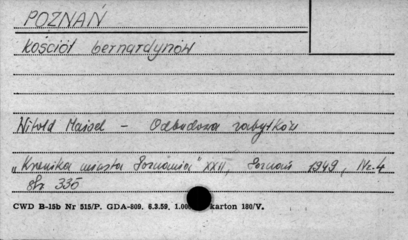 POZNAŃ
kościół bernardynów
Witold Maisel - Odbudowa zabytków
"Kronika miasta Poznania" XXII, Poznań 1949, Nr. 4
str 335
CWD B-15b Nr 515/P. GDA-809. 6.3.59. 1.00 karton 180/V.